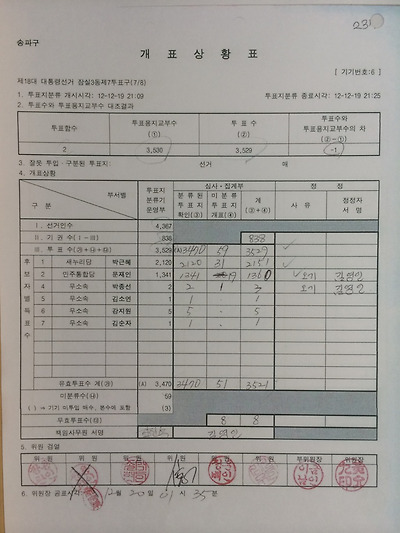 231
송파구
개 표 상 황 표
[ 기기번호:6 ]
제18대 대통령선거 잠실3동제7투표구(7/8)
1. 투표지분류 개시시각: 12-12-19 21:09 투표지분류 종료시각: 12-12-19 21:25
2. 투표수와 투표용지교부수 대조결과
투표함수 투표용지교부수 (①) 투 표 수 (②) 투표수와 투표용지교부수의 차 (②-①)
2 3,530 3,529 -1
3. 잘못 투입·구분된 투표지: 선거 매
4. 개표상황
구 분 부서별 투표지분류기운영부 심사·집계부 정 정
분류된 투표지 확인(③) 미분류 투표지 개표(④) 계 (③+④) 사 유 정정자 서 명
Ⅰ. 선거인수 4,367
Ⅱ. 기권수(Ⅰ-Ⅲ) 838 838
Ⅲ. 투표수 3,529 3470 59 3529
후보자별득표수
1 새누리당 박근혜 2,120 2120 31 2151
2 민주통합당 문재인 1,341 1341 19 1360 오기
3 무소속 박종선 2 2 1 3 오기
4 무소속 김소연 1 1 · 1
5 무소속 강지원 5 5 · 5
6 무소속 김순자 1 1 · 1
유효투표수 계 (A) 3,470 3470 51 3521
미분류수 59
(3)
무효투표수 8 8
책임사무원 서명
5. 위원 검열
위 원 위 원 위 원 위 원 위 원 위 원 부위원장 위 원 장
6. 위원장 공표시각: 12월 20일 시 35분